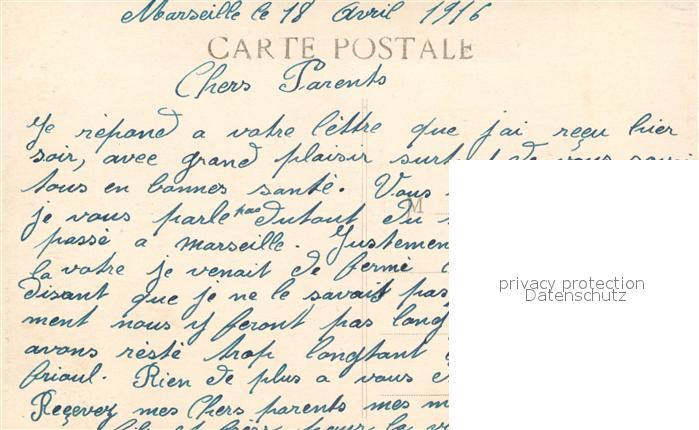 Marseille le 18 Avril 1916
CARTE POSTALE
Chers Parents
Je répond a votre lèttre que j'ai reçu hier
soir, avec grand plaisir surt de vous savoir
tous en bonnes santé. Vous
je vous parle pas dutout du
M
passé a Marseille. Justemen
la votre je venait de fermé
disant que je ne le savait pas
ment nous y feront pas long
avons rèsté trop longtant
frioul. Rien de plus a vous
Reçevez mes Chers parents mes m
privacy protection
Datenschutz